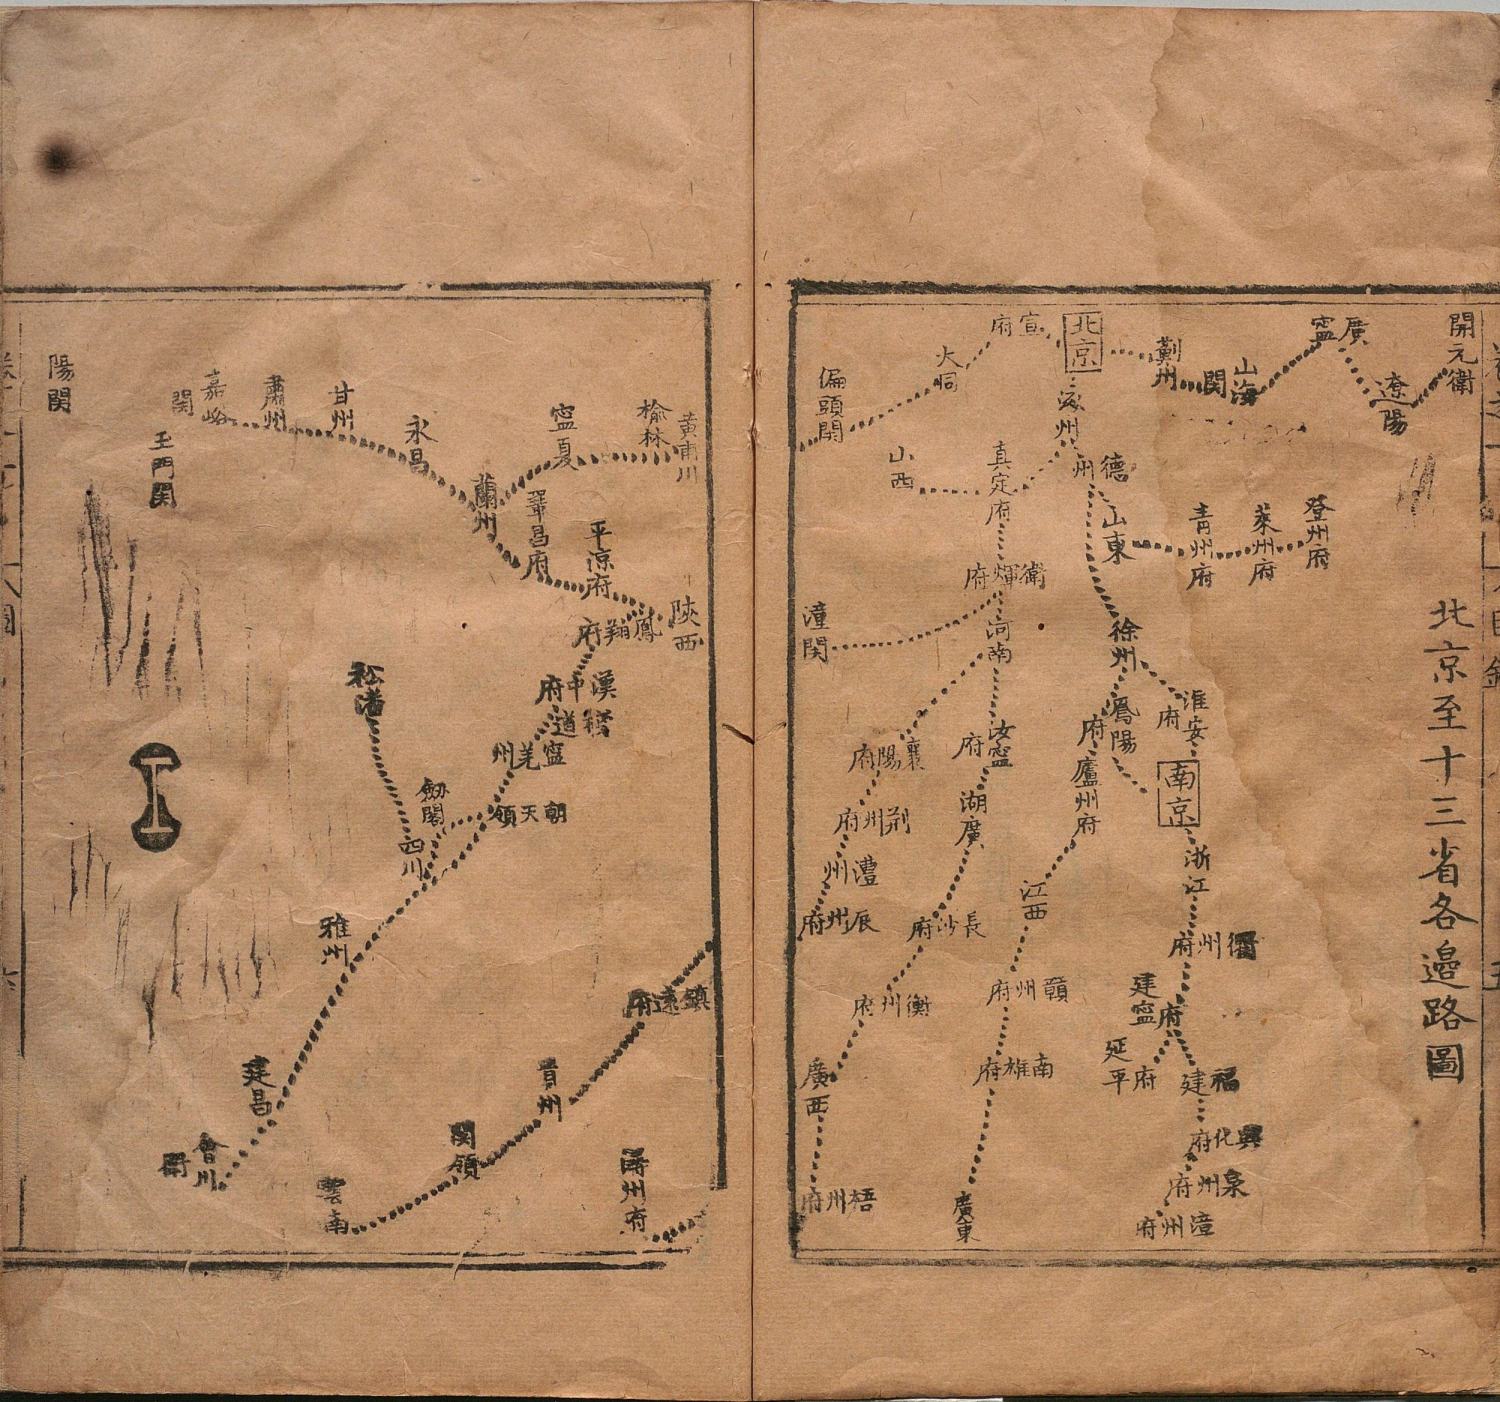 北京至十三省各邉路圖
開元衛
遼陽
廣寧
山海関
薊州
北京
宣府
大同
偏頭関
涿州
德州
真定府
山西
山東
青州府
萊州府
登州府
衛煇府
潼関
河南
徐州
淮安府
鳳陽府
南京
廬州府
汝寧府
襄陽府
湖廣
荆州府
澧州
辰州府
長沙府
江西
浙江
衢州府
建寧府
延平府
福建
興化府
泉州府
漳州府
贛州府
南雄府
廣東
衡州府
廣西
梧州府
黃甫川
榆林
寧夏
蘭州
永昌
甘州
肅州
嘉峪関
玉門関
陽関
鞏昌府
平涼府
陝西
鳳翔府
漢中府
棧道
寧羌州
朝天嶺
劒閣
松潘
四川
雅州
建昌
會川衛
鎮遠府
貴州
関嶺
雲南
潯州府